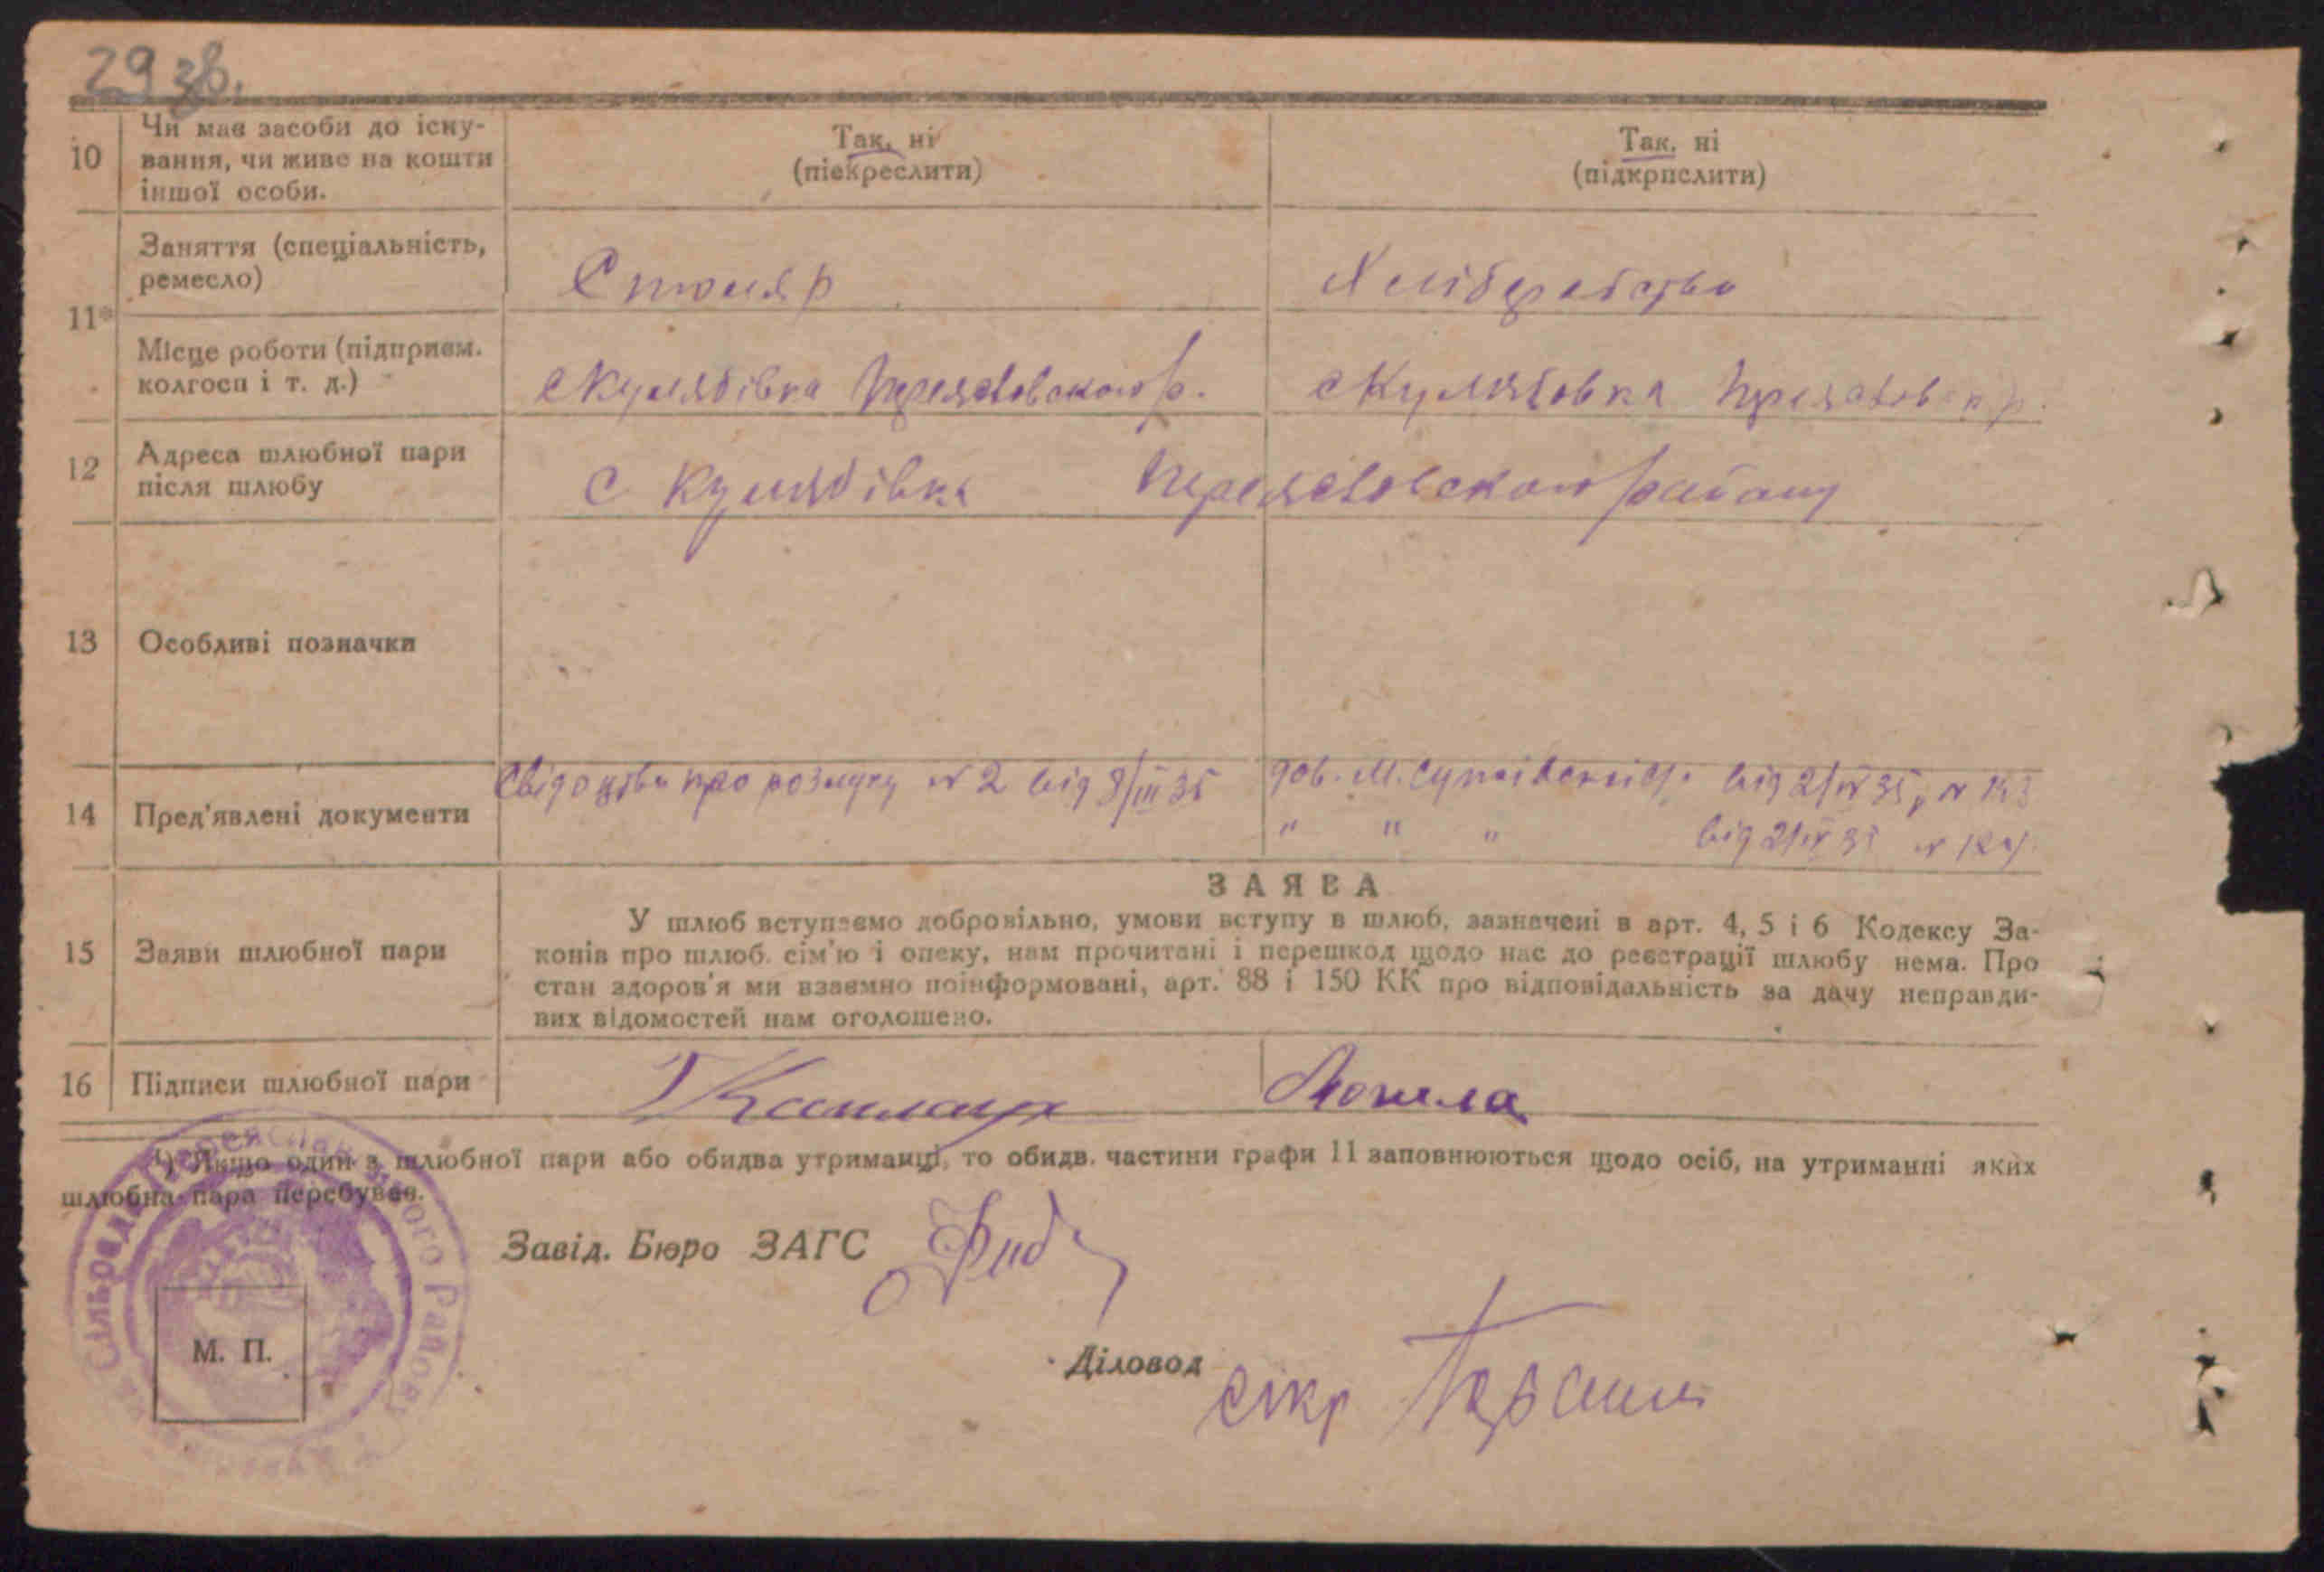 29 зв.
10 Чи має засоби до існу-
вання, чи живе на кошти
іншої особи.
Так, ні
(піекреслити)
Так, ні
(підкрпслити)
11*
Заняття (спеціальність,
ремесло)
Столяр
Хліборобство
Місце роботи (підприєм.
колгосп і т. д.)
с Кулябівка р.
с Кулябовка р.
12 Адреса шлюбної пари
після шлюбу
с Кулябівка району
13 Особливі позначки
14 Пред'явлені документи
Свідоцтво про розлуку № 2 від 8/III 35
дов. М. від 2/IV 35 р №
" " " від 2/IV 35 №
15 Заяви шлюбної пари
ЗАЯВА
У шлюб вступаємо добровільно, умови вступу в шлюб, зазначені в арт. 4, 5 і 6 Кодексу За-
конів про шлюб. сім'ю і опеку, нам прочитані і перешкод щодо нас до реєстрації шлюбу нема. Про
стан здоров'я ми взаємно поінформовані, арт. 88 і 150 КК про відповідальність за дачу неправди-
вих відомостей нам оголошено.
16 Підписи шлюбної пари
¹) Якщо один з шлюбної пари або обидва утриманці, то обидв. частини графи 11 заповнюються щодо осіб, на утриманні яких
шлюбна пара перебуває.
Завід. Бюро ЗАГС
М. П.
Діловод
сікр